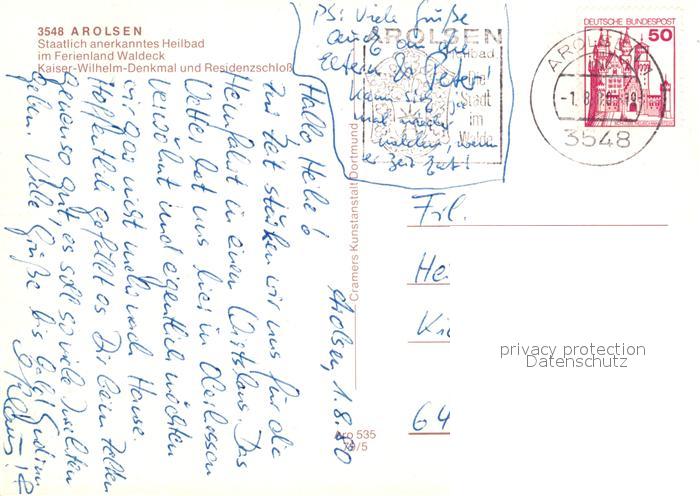 3548 AROLSEN
Staatlich anerkanntes Heilbad
im Ferienland Waldeck
Kaiser-Wilhelm-Denkmal und Residenzschloß
PS: Viele Grüße
auch an die
Eltern & Peter
kann sich ja
mal wieder
melden, wenn
er Zeit hat!
AROLSEN
Heilbad
Stadt
im
Walde
DEUTSCHE BUNDESPOST
50
AROLSEN
-1.8.80-19
3548
Arolsen, 1.8.80
Hallo Heike!
Zur Zeit stärken wir uns für die
Heimfahrt in einem Wirtshaus. Das
Wetter hat uns hier in Arolsen
verwöhnt und eigentlich möchten
wir gar nicht mehr nach Hause.
Hoffentlich gefällt es Dir beim Zelten
genauso gut, es soll so viele
geben. Viele Grüße bis bald
Cramers Kunstanstalt Dortmund
Aro 535
79/5
Frl.
He
Ki
64
privacy protection
Datenschutz